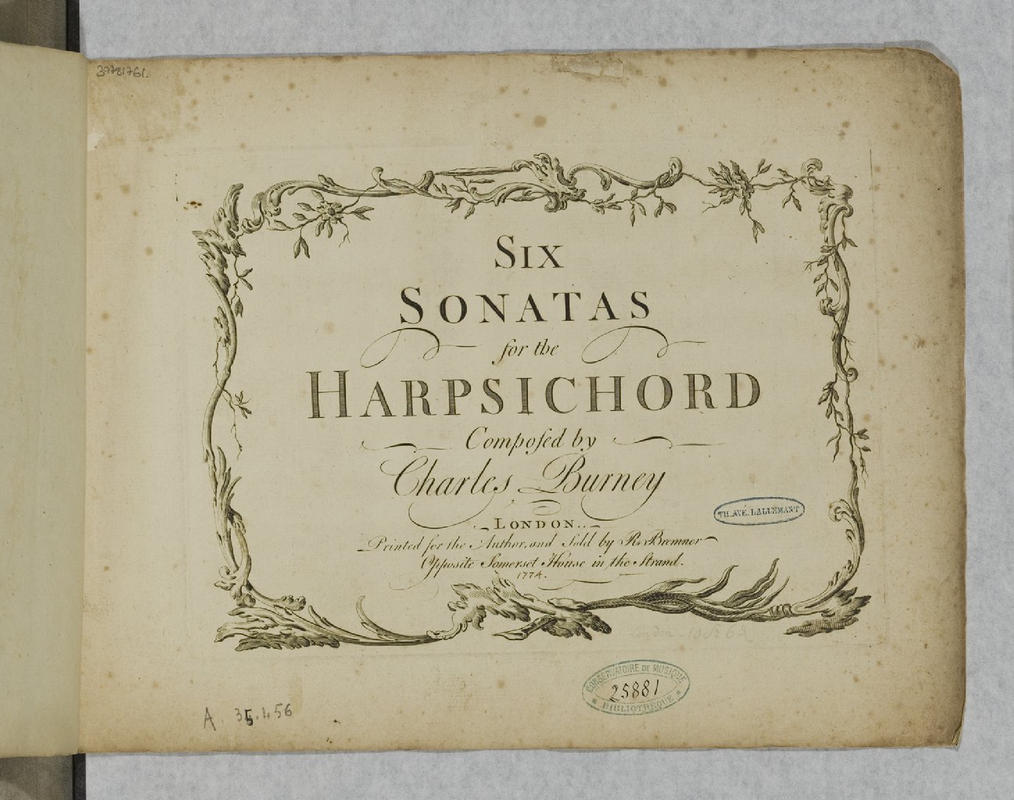 37781761.
Six
Sonatas
for the
Harpsichord
Compoſed by
Charles Burney
LONDON.
Printed for the Author, and Sold by R. Bremner
Opposite Somerset House in the Strand.
1774.
TH. AVÉ. LALLEMANT
CONSERVATOIRE DE MUSIQUE
25881
BIBLIOTHÈQUE
A. 35.456